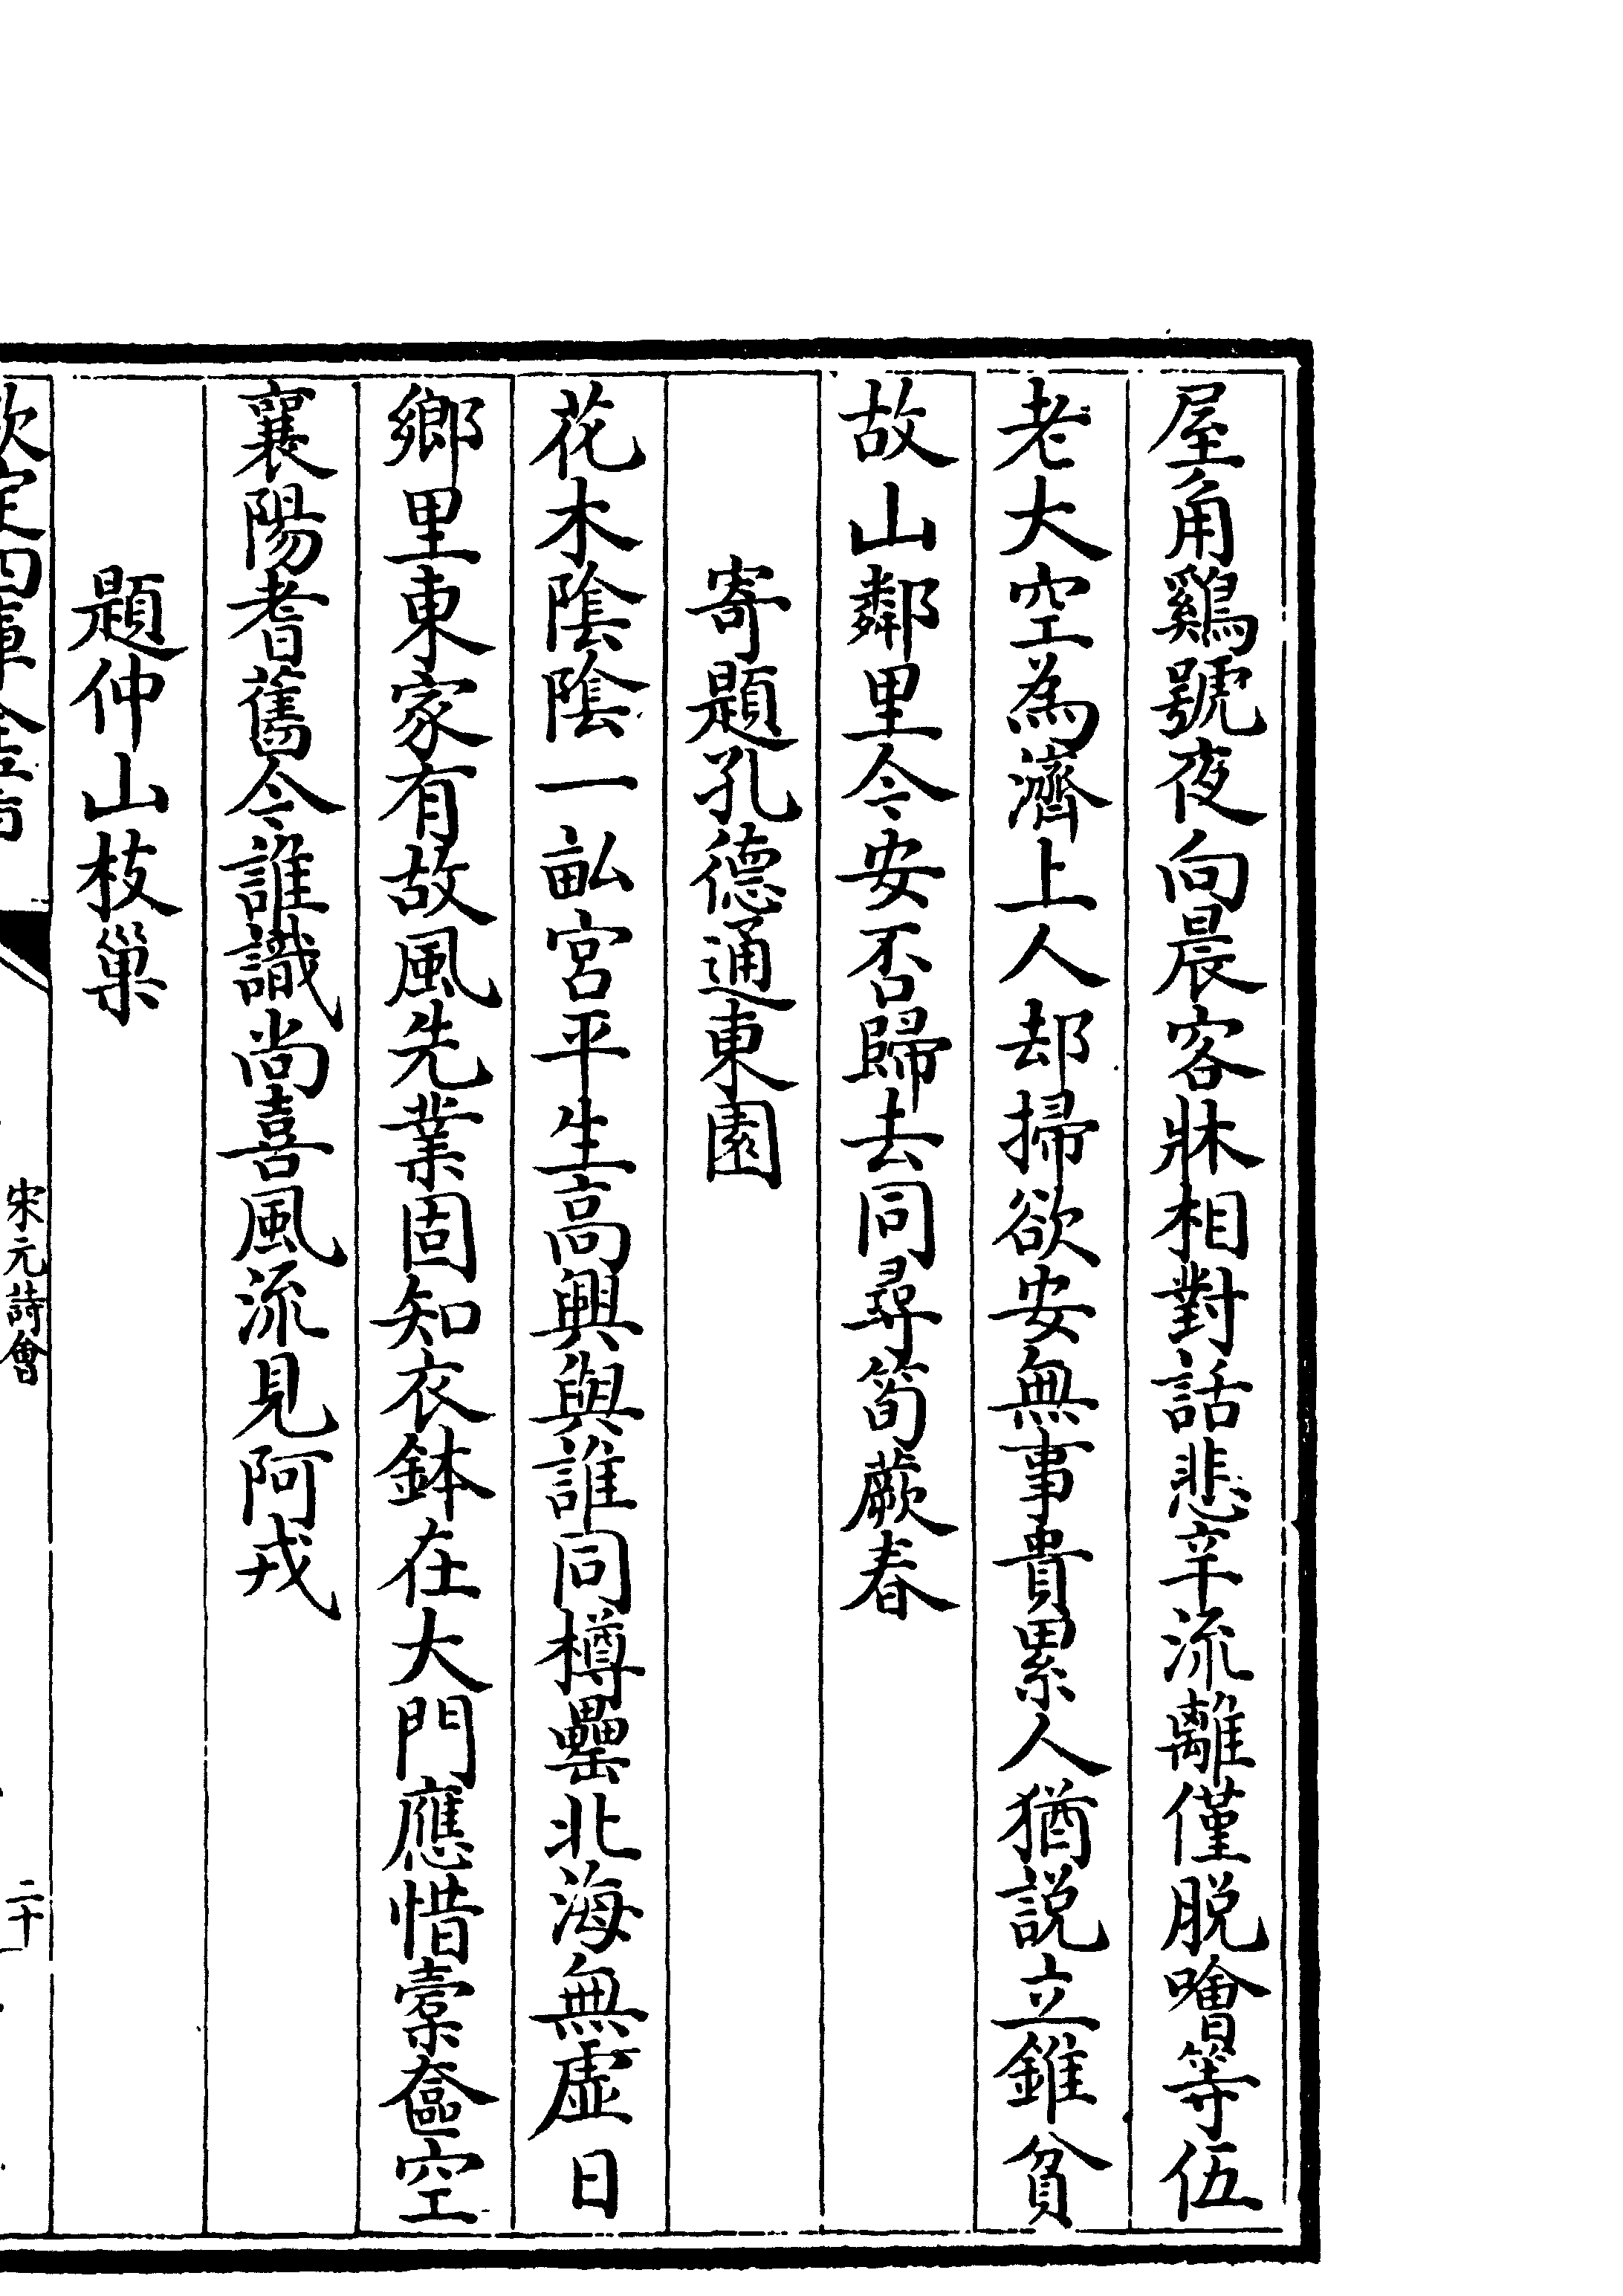 屋角鷄號夜向晨客牀相對話悲辛流離僅脱噲等伍
老大空為濟上人却掃欲安無事貴累人猶説立錐貧
故山鄰里今安否歸去同尋筍蕨春
寄題孔德通東園
花木陰陰一畆宮平生高興與誰同樽罍北海無虚日
鄉里東家有故風先業固知衣鉢在大門應惜槖奩空
襄陽耆舊今誰識尚喜風流見阿戎
題仲山枝巢
欽定四庫全書
宋元詩會
二十